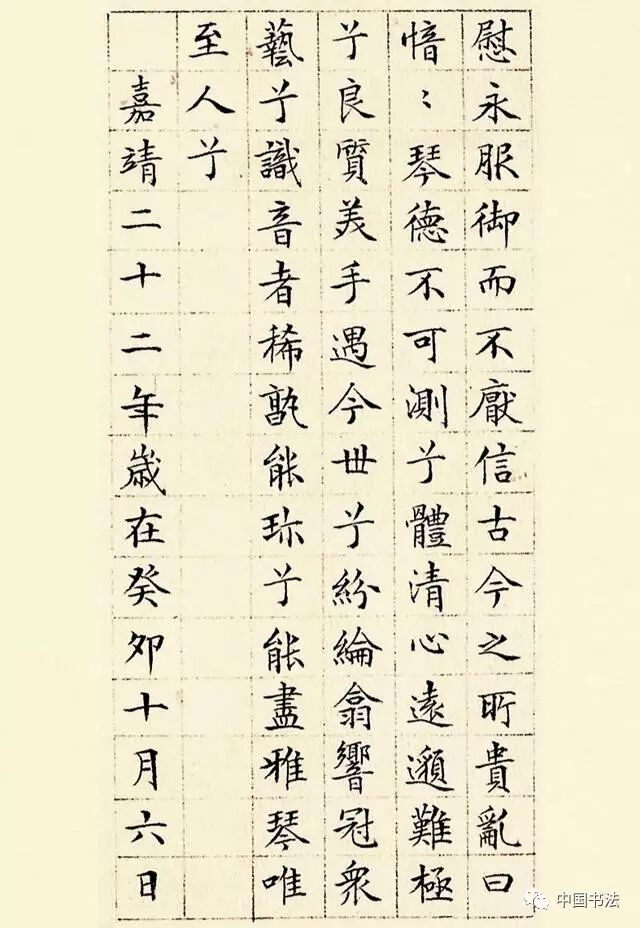 慰永服御而不厭信古今之所貴亂曰
愔〻琴德不可測兮體清心遠邈難極
兮良質美手遇今世兮紛綸翕響冠衆
藝兮識音者稀孰能珎兮能盡雅琴唯
至人兮
嘉靖二十二年歲在癸卯十月六日
中国书法